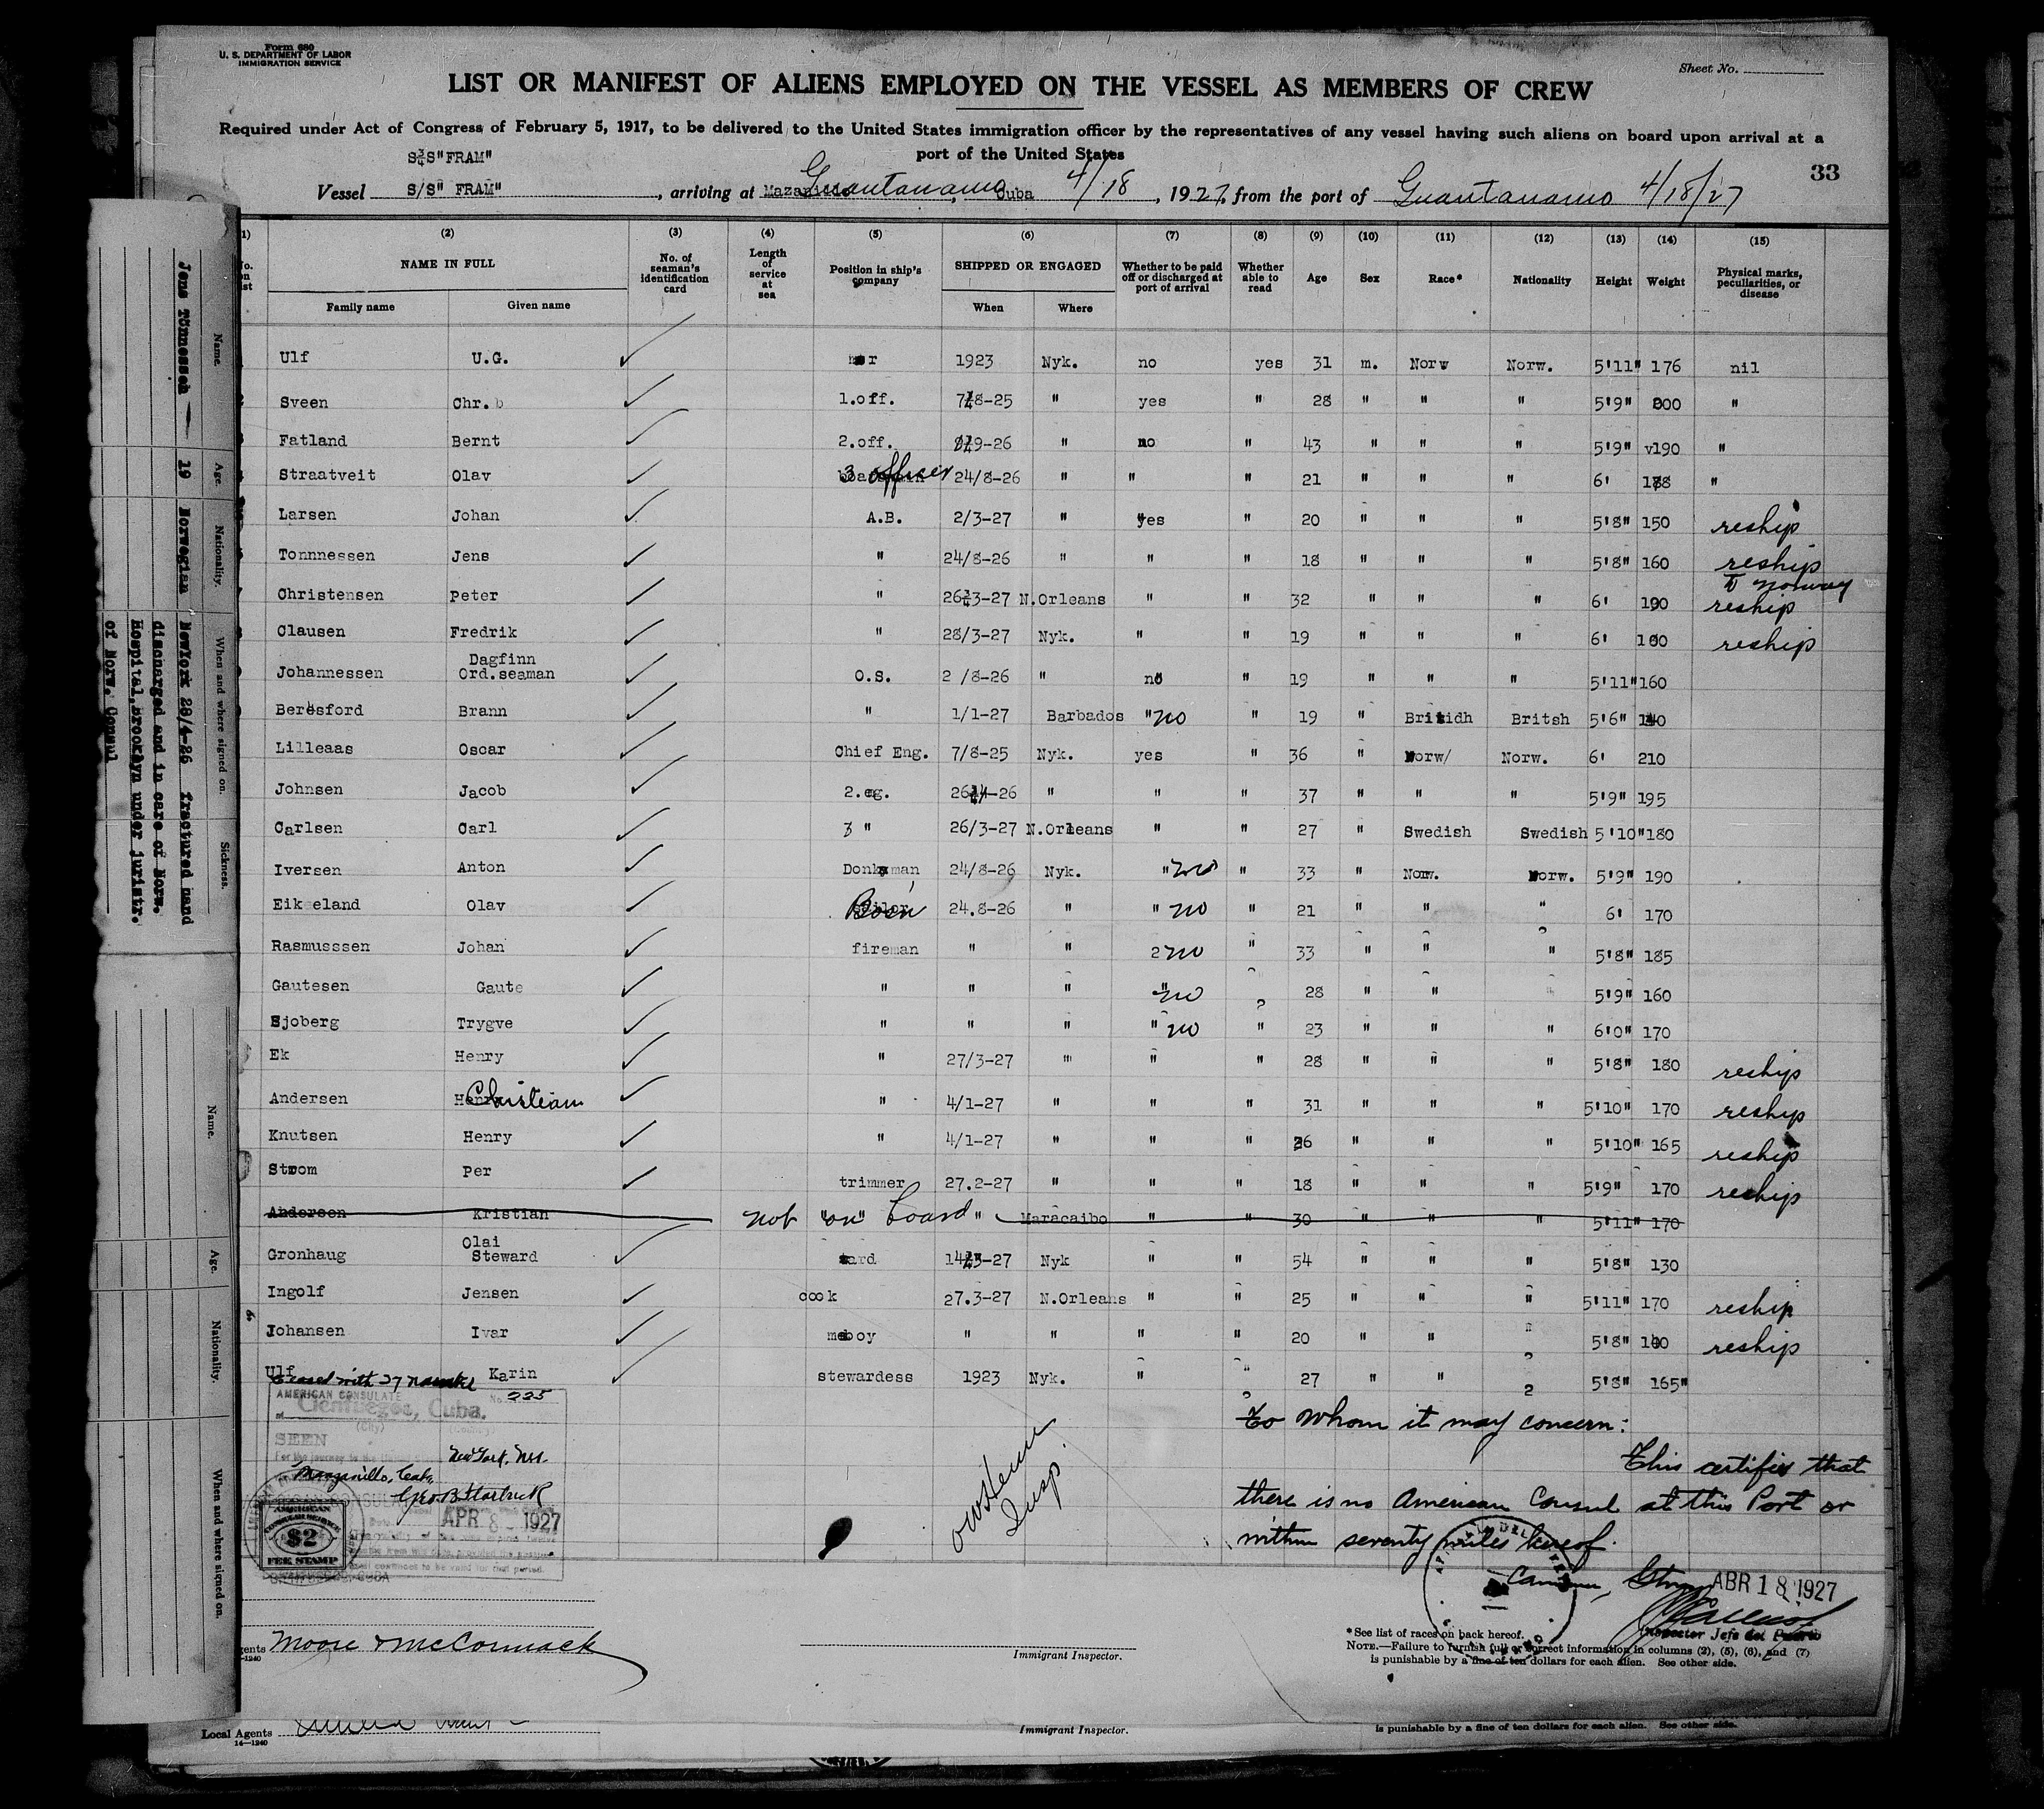 Form 680
U. S. DEPARTMENT OF LABOR
IMMIGRATION SERVICE
Sheet No.
LIST OR MANIFEST OF ALIENS EMPLOYED ON THE VESSEL AS MEMBERS OF CREW
Required under Act of Congress of February 5, 1917, to be delivered to the United States immigration officer by the representatives of any vessel having such aliens on board upon arrival at a
port of the United States
S/S"FRAM"
33
Vessel S/S" FRAM", arriving at Guantanamo, Cuba 4/18, 1927, from the port of Guantanamo 4/18/27
(1) (2) (3) (4) (5) (6) (7) (8) (9) (10) (11) (12) (13) (14) (15)
No. on list NAME IN FULL No. of seaman's identification card Length of service at sea Position in ship's company SHIPPED OR ENGAGED Whether to be paid off or discharged at port of arrival Whether able to read Age Sex Race* Nationality Height Weight Physical marks, peculiarities, or disease
Family name Given name When Where
Ulf U.G. 1923 Nyk. no yes 31 m. Norw Norw. 5'11" 176 nil
Sveen Chr. 1.off. 7/8-25 " yes " 28 " " " 5'9" 200 "
Fatland Bernt 2.off. 9-26 " no " 43 " " " 5'9" 190 "
Straatveit Olav 3 officer 24/8-26 " " " 21 " " " 6' "
Larsen Johan A.B. 2/3-27 " yes " 20 " " " 5'8" 150 reship
Tonnnessen Jens " 24/8-26 " " " 18 " " " 5'8" 160 reship
to Norway
Christensen Peter " 26/3-27 N.Orleans " " 32 " " " 6' 190 reship
Clausen Fredrik " 28/3-27 Nyk. " " 19 " " " 6' reship
Dagfinn
Johannessen Ord.seaman O.S. 2 /8-26 " no " 19 " " " 5'11" 160
Beresford Brann " 1/1-27 Barbados " no " 19 " Britidh Britsh 5'6" 140
Lilleaas Oscar Chief Eng. 7/8-25 Nyk. yes " 36 " Norw/ Norw. 6' 210
Johnsen Jacob 2.eg. 26/4-26 " " " 37 " " " 5'9" 195
Carlsen Carl 3 " 26/3-27 N.Orleans " " 27 " Swedish Swedish 5'10" 180
Iversen Anton Donkman 24/8-26 Nyk. " no " 33 " Norw. Norw. 5'9" 190
Eikeland Olav Bosn 24.8-26 " " no " 21 " " " 6' 170
Rasmusssen Johan fireman " " 2 no " 33 " " " 5'8" 185
Gautesen Gaute " " " " no 28 " " " 5'9" 160
Sjoberg Trygve " " " " no " 23 " " " 6'0" 170
Ek Henry " 27/3-27 " " " 28 " " " 5'8" 180 reship
Andersen Christian " 4/1-27 " " " 31 " " " 5'10" 170 reship
Knutsen Henry " 4/1-27 " " " 26 " " " 5'10" 165 reship
Strom Per trimmer 27.2-27 " " " 18 " " " 5'9" 170 reship
Andersen Kristian not "on" board " Maracaibo " " 30 " " " 5'11" 170
Olai
Gronhaug Steward 14/3-27 Nyk " " 54 " " " 5'8" 130
Ingolf Jensen cook 27.3-27 N.Orleans " " 25 " " " 5'11" 170 reship
Johansen Ivar mesboy " " " " 20 " " " 5'8" 140 reship
Ulf Karin stewardess 1923 Nyk. " " 27 " " 5'8" 165"
Closed with 27 names
AMERICAN CONSULATE No. 225
at Cienfuegos, Cuba.
(City) (Country)
SEEN
For the journey to the
New York, N.Y.
Manzanillo, Cuba,
Geo. B. Starbuck
APR 8 - 1927
AMERICAN
CONSULAR SERVICE
$2
FEE STAMP
CIENFUEGOS, CUBA
Insp.
To whom it may concern:
This certifies that
there is no American Consul at this Port or
within seventy miles hereof.
ABR 18 1927
Inspector Jefe del Puerto
Agents Moore & McCormack
14-1240
Immigrant Inspector.
*See list of races on back hereof.
NOTE.—Failure to furnish full or correct information in columns (2), (5), (6), and (7)
is punishable by a fine of ten dollars for each alien. See other side.
Local Agents
14—1240
Immigrant Inspector.
is punishable by a fine of ten dollars for each alien. See other side.
Name. Age. Nationality. When and where signed on. Sickness.
Jens Tönnessen 19 Norwegian NewYork 28/4-26 fractured hand
discharged and in care of Norw.
Hospital, Brooklyn under juristr.
of Norw. Consul
Name. Age. Nationality. When and where signed on.